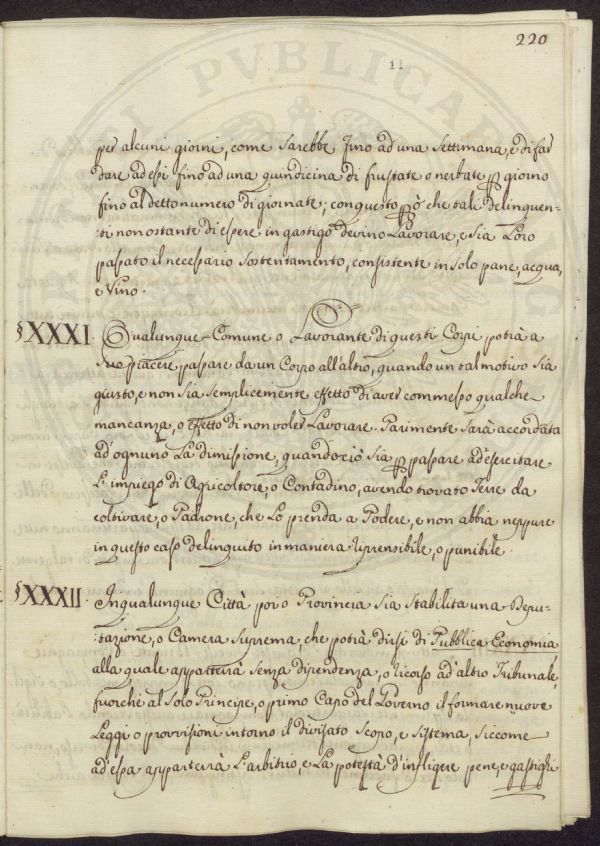 220
11
per alcuni giorni, come sarebbe fino ad una settimana, e di far
dare ad essi fino ad una quindicina di frustate o nerbate p giorno
fino al detto numero di giornate; con questo però che tali delinquen-
:ti non ostante di essere in gastigo devino Lavorare, e sia Loro
passato il necessario sostentamento, consistente in solo pane, acqua,
e Vino.
§XXXI. Qualunque Comune o Lavorante di questi Corpi potrà a
suo piacere passare da un Corpo all'altro, quando un tal motivo sia
giusto, e non sia semplicemente effetto di aver commesso qualche
mancanza, o effetto di non voler Lavorare. Parimente sarà accordata
ad ognuno La dimissione, quando ciò sia p passare ad esercitare
L'impiego di Agricoltore, o Contadino, avendo trovato Terre da
coltivare, o Padrone, che Lo prenda a Podere, e non abbia neppure
in questo caso delinquito in maniera riprensibile, o punibile.
§XXXII. In qualunque Città poi o Provincia sia stabilita una Depu-
:tazione, o Camera suprema, che potrà dirsi di Pubblica Economia
alla quale appatterà senza dipendenza, o ricorso ad altro Tribunale,
fuorchè al solo Principe, o primo Capo del Governo il formare nuove
Leggi o provvisioni intorno il divisato scopo, e sistema, siccome
ad essa apparterrà L'arbitrio, e La potestà d'infligere pene, e gastighi